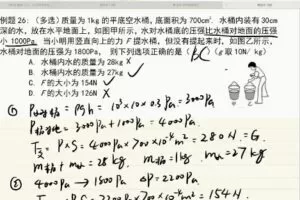 例题 26:（多选）质量为1kg 的平底空水桶，底面积为700cm². 水桶内装有30cm
深的水，放在水平地面上，如图甲所示，水对水桶底的压强比水桶对地面的压强
小 1000Pa. 当小明用竖直向上的力 F 提水桶，但没有提起来时，如图乙所示，
水桶对地面的压强为1800Pa. 则下列选项正确的是（ （g 取 10N/ kg）
A. 水桶内水的质量为 28kg ×
B. 水桶内水的质量为 27kg
C. F的大小为 154N
D. F的大小为 126N ×
① P水对桶 = ρgh = 1×10³×10×0.3Pa = 3000Pa
P桶对地 = 3000Pa + 1000Pa = 4000Pa
= P×S = 4000Pa×700×10⁻⁴m² = 280N = G
m桶+m水 = 28kg. m桶=1kg m水=27kg
② 4000Pa → 1800Pa ΔP=2200Pa
700×10⁻⁴m² = 154N